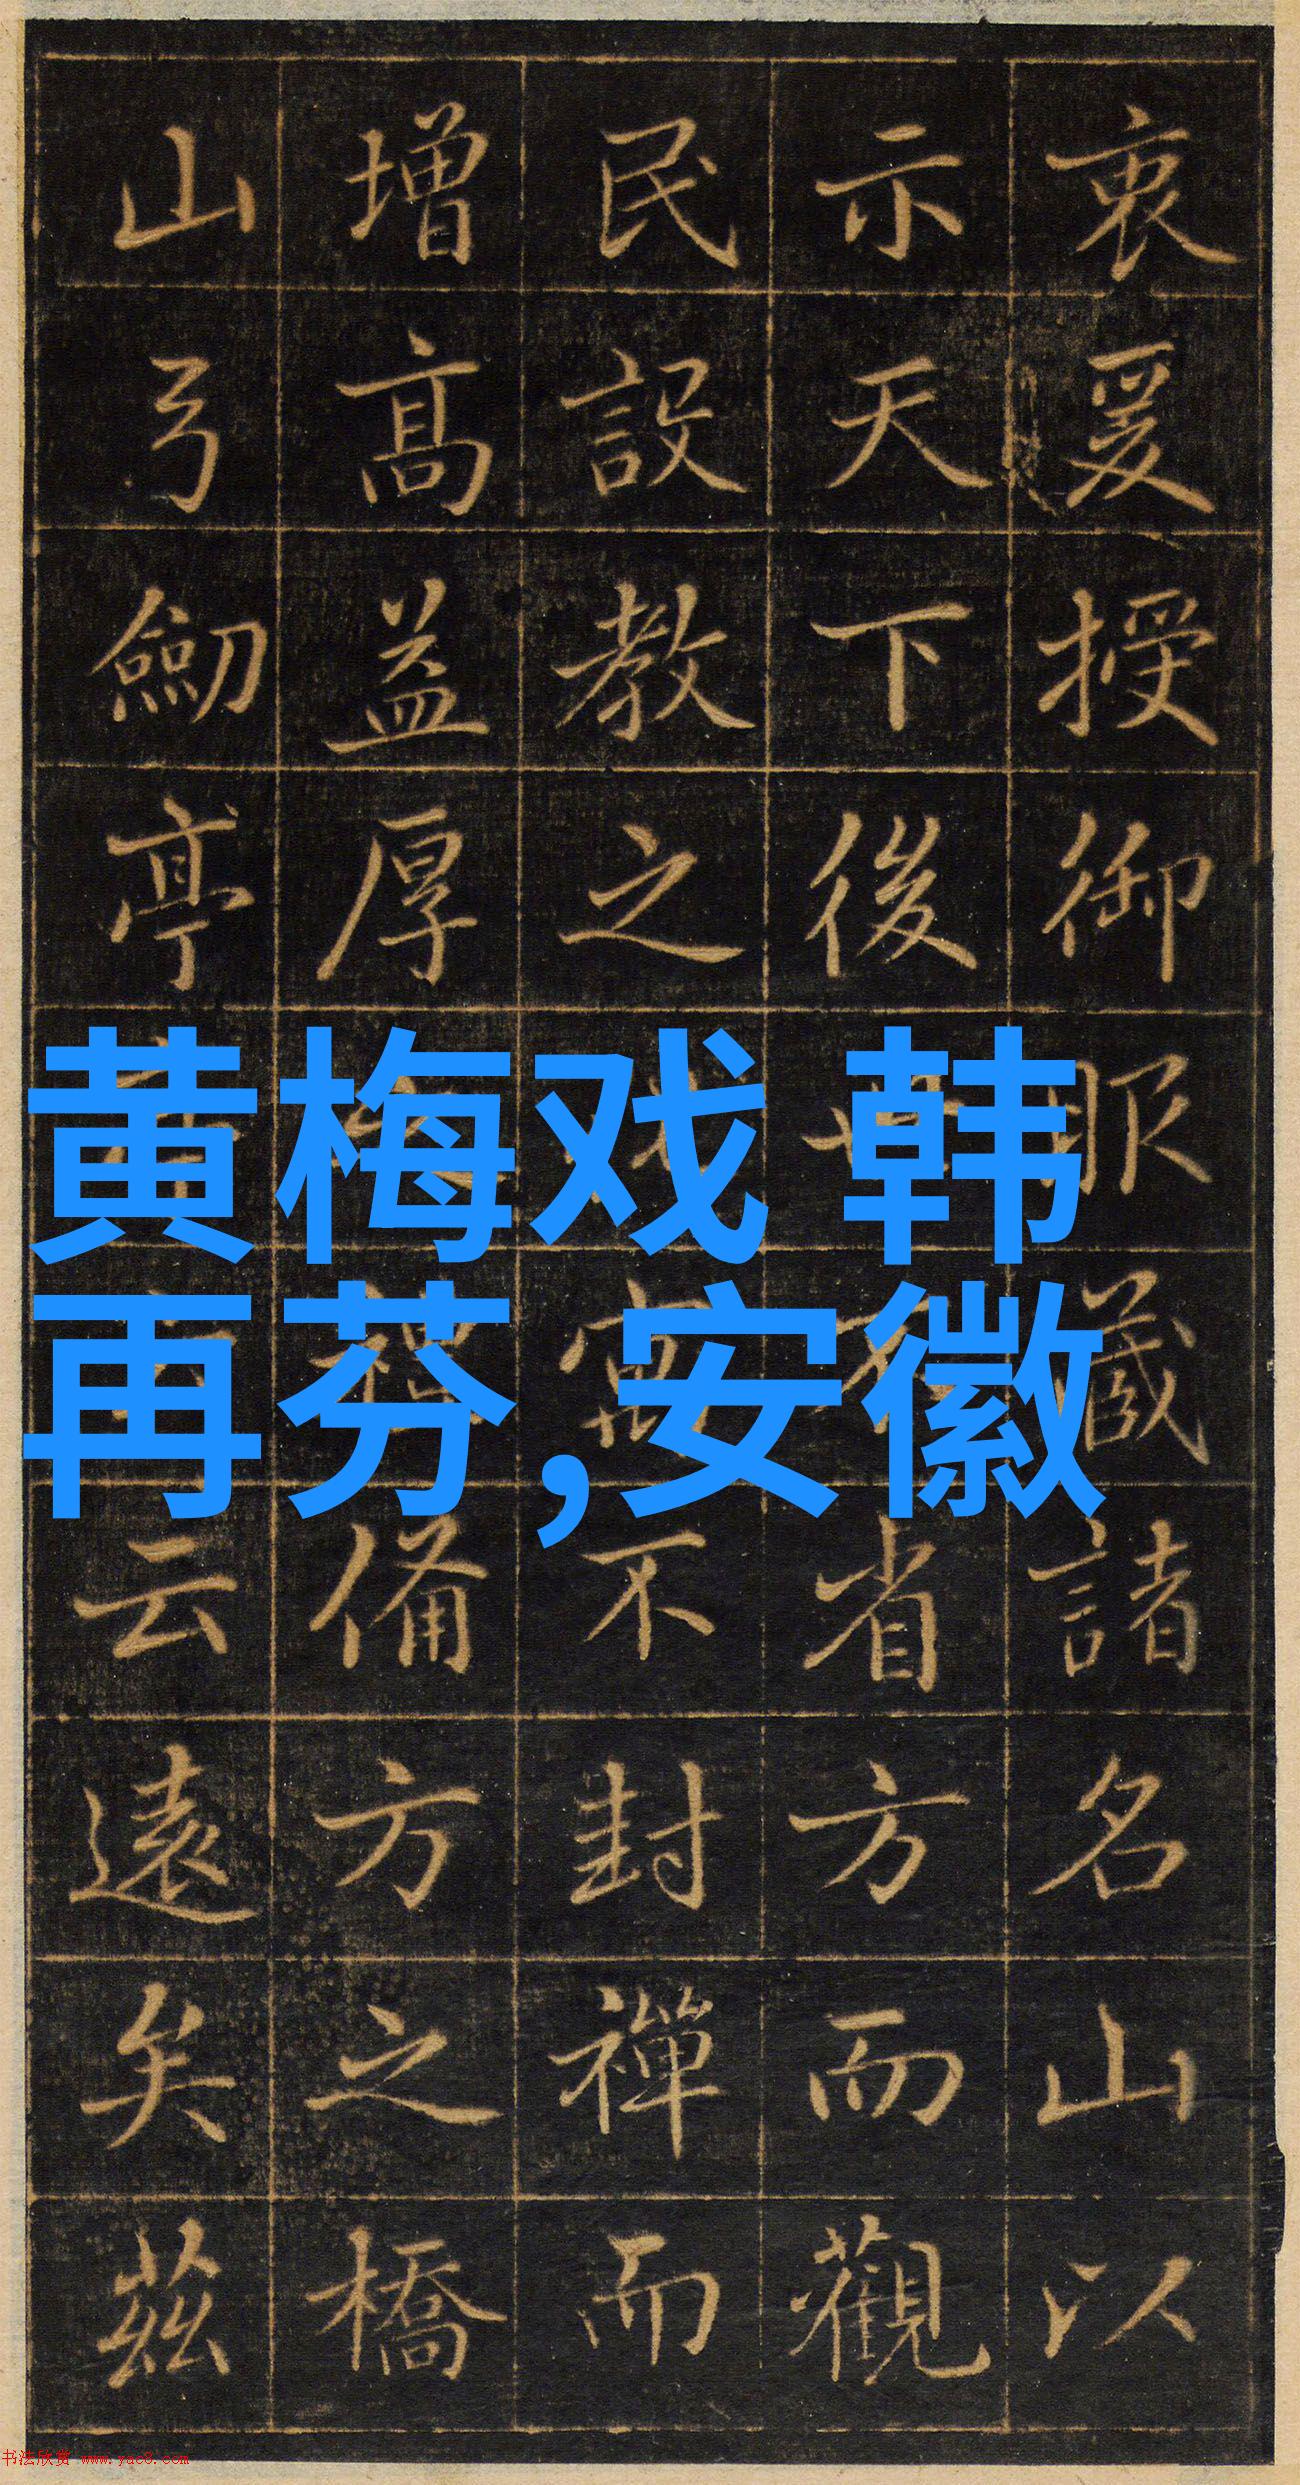 衷爰授御服藏諸名山以
示天下後省方而觀
民設教之不封禪而
增高益厚備方之橋
山弓劒亭云遠矣茲
黄梅戏 韩
再芬,安徽
书法欣赏 www.yac8.com